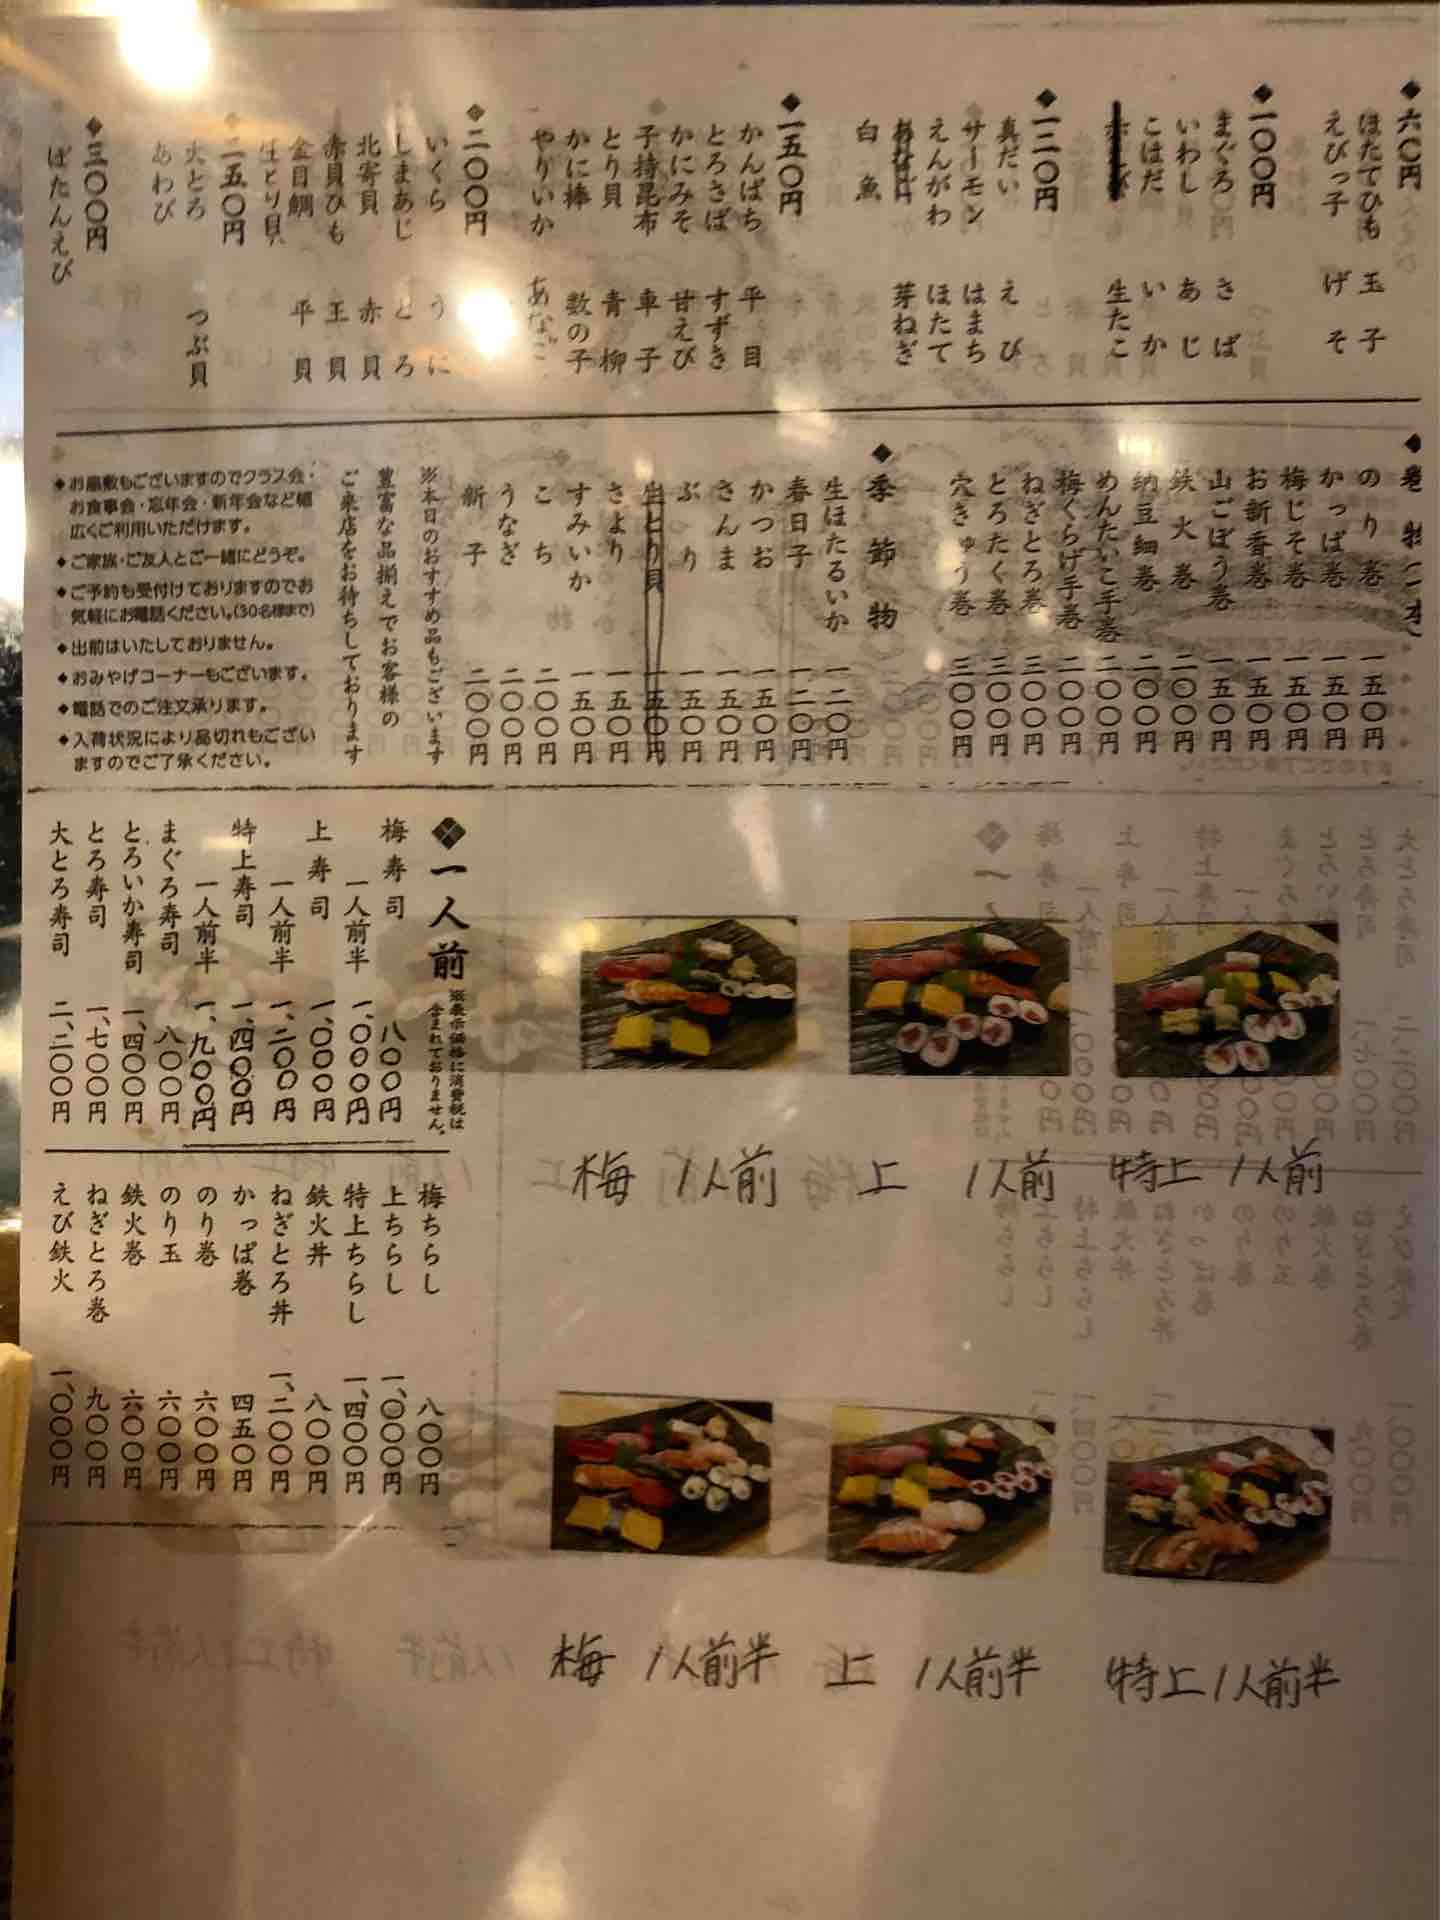 ◆六〇円
ほたてひも 玉子
えびっ子 げそ
◆一〇〇円
まぐろ さば
いわし あじ
こはだ いか
生たこ
◆一二〇円
真だい えび
サーモン はまち
えんがわ ほたて
芽ねぎ
白魚
◆一五〇円
かんぱち 平目
とろさば すずき
かにみそ 甘えび
子持昆布 車子
とり貝 青柳
かに棒 数の子
やりいか あなご
◆二〇〇円
いくら うに
しまあじ とろ
北寄貝 赤貝
赤貝ひも 王貝
金目鯛 平貝
生とり貝
◆二五〇円
大とろ つぶ貝
あわび
◆三〇〇円
ぼたんえび
◆巻物
のり巻 一五〇円
かっぱ巻 一五〇円
梅じそ巻 一五〇円
お新香巻 一五〇円
山ごぼう巻 一五〇円
鉄火巻 二〇〇円
納豆細巻 二〇〇円
めんたいこ手巻 二〇〇円
梅くらげ手巻 二〇〇円
ねぎとろ巻 三〇〇円
とろたく巻 三〇〇円
穴きゅう巻 三〇〇円
◆季節物
生ほたるいか 一二〇円
春日子 一二〇円
かつお 一五〇円
さんま 一五〇円
ぶり 一五〇円
生とり貝 一五〇円
さより 一五〇円
すみいか 一五〇円
こち 二〇〇円
うなぎ 二〇〇円
新子 二〇〇円
※本日のおすすめ品もございます
豊富な品揃えでお客様の
ご来店をお待ちしております
◆お座敷もございますのでクラス会・
お食事会・忘年会・新年会など幅
広くご利用いただけます。
◆ご家族・ご友人とご一緒にどうぞ。
◆ご予約も受付けておりますのでお
気軽にお電話ください。(30名様まで)
◆出前はいたしておりません。
◆おみやげコーナーもございます。
◆電話でのご注文承ります。
◆入荷状況により品切れもござい
ますのでご了承ください。
◆一人前
※表示価格に消費税は
含まれておりません。
梅寿司 八〇〇円
一人前半 一、〇〇〇円
上寿司 一、〇〇〇円
一人前半 一、二〇〇円
特上寿司 一、四〇〇円
一人前半 一、九〇〇円
まぐろ寿司 八〇〇円
とろいか寿司 一、四〇〇円
とろ寿司 一、七〇〇円
大とろ寿司 二、二〇〇円
梅ちらし 八〇〇円
上ちらし 一、〇〇〇円
特上ちらし 一、四〇〇円
鉄火丼 八〇〇円
ねぎとろ丼 一、二〇〇円
かっぱ巻 四五〇円
のり巻 六〇〇円
のり玉 六〇〇円
鉄火巻 六〇〇円
ねぎとろ巻 九〇〇円
えび鉄火 一、〇〇〇円
梅 1人前 上 1人前 特上 1人前
梅 1人前半 上 1人前半 特上 1人前半